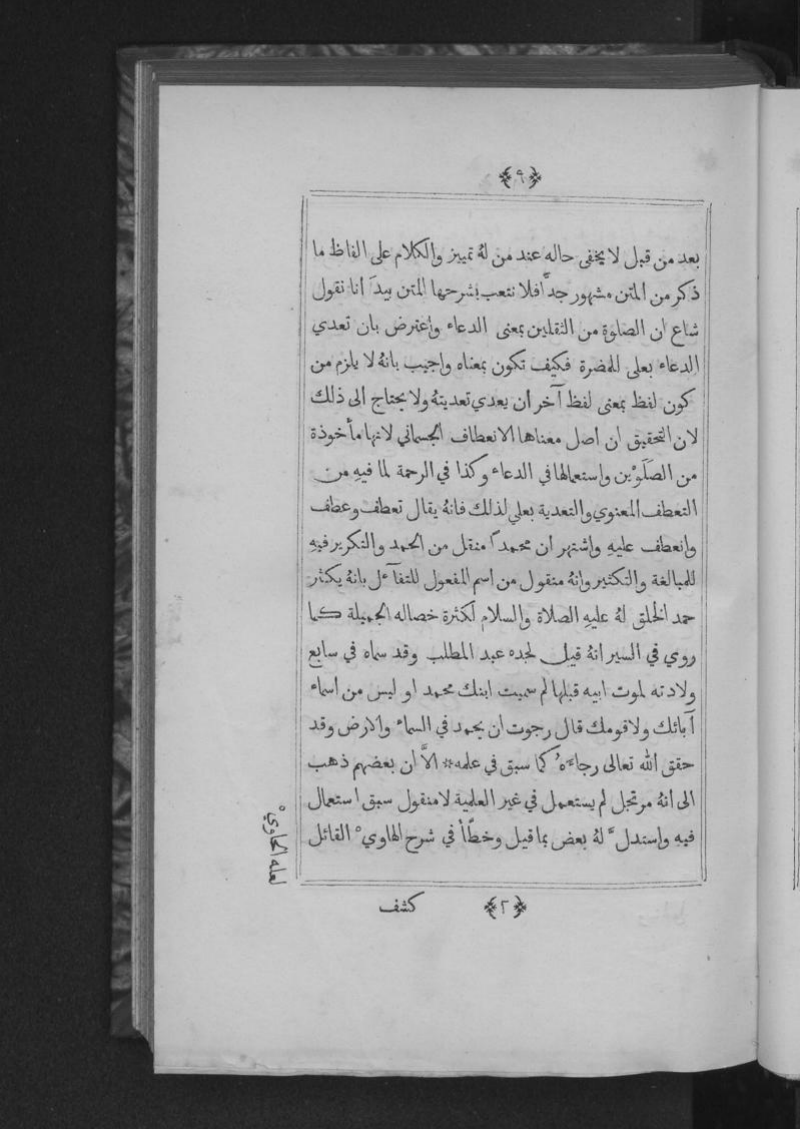 ﴿٩﴾
بعد من قبل لا يخفى حاله عند من لهُ تمييز والكلام على الفاظ ما
ذكر من المتن مشهور جدًّا فلا نتعب بشرحها المتن بيدَ أنا نقول
شاع ان الصلوة من الثقلين بمعنى الدعاء وأعترض بان تعدي
الدعاء بعلى للمضرة فكيف تكون بمعناه واجيب بانهُ لا يلزم من
كون لفظ بمعنى لفظ آخر أن يعدي تعديتهُ ولا يحتاج الى ذلك
لان التحقيق ان اصل معناها الانعطاف الجسماني لانها مأخوذة
من الصَلَوْين واستعمالها في الدعاء وكذا في الرحمة لما فيهِ من
التعطف المعنوي والتعدية بعلى لذلك فانهُ يقال تعطف وعطف
وانعطف عليهِ واشتهر ان محمداً منقل من الحمد والتكرير فيهِ
للمبالغة والتكثير وانهُ منقول من اسم المفعول للتفآءل بانهُ يكثر
حمد الخلق لهُ عليهِ الصلاة والسلام لكثرة خصاله الجميلة كما
روي في السير انهُ قيل لجده عبد المطلب وقد سماه في سابع
ولادته لموت ابيه قبلها لم سميت ابنك محمد او ليس من اسماء
آبائك ولا قومك قال رجوت ان يحمد في السماء والارض وقد
حقق الله تعالى رجاءهُ كما سبق في علمه * الاَّ ان بعضهم ذهب
الى انهُ مرتجل لم يستعمل في غير العلمية لا منقول سبق استعمال
فيه واستدلَّ لهُ بعض بما قيل وخطأ في شرح الهاوي ْ القائل
ْ لعله الحاوي
﴿٢﴾ كشف